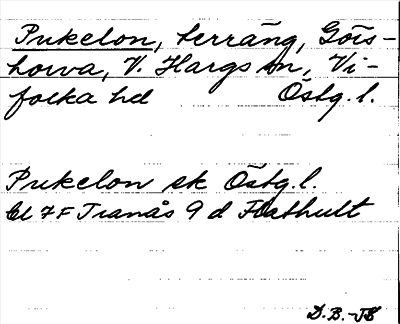 Pukelon, terräng, Göts-
horva, V. Hargs sn, Vi-
folka hd Östg. l.
Pukelon sk Östg. l.
bl 7 F Tranås 9 d Flathult
D.B.-JE